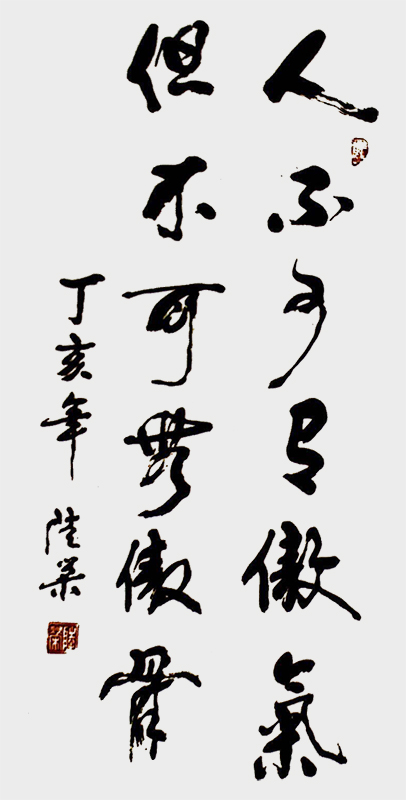 人不可有傲氣
但不可無傲骨
丁亥年 陸榮